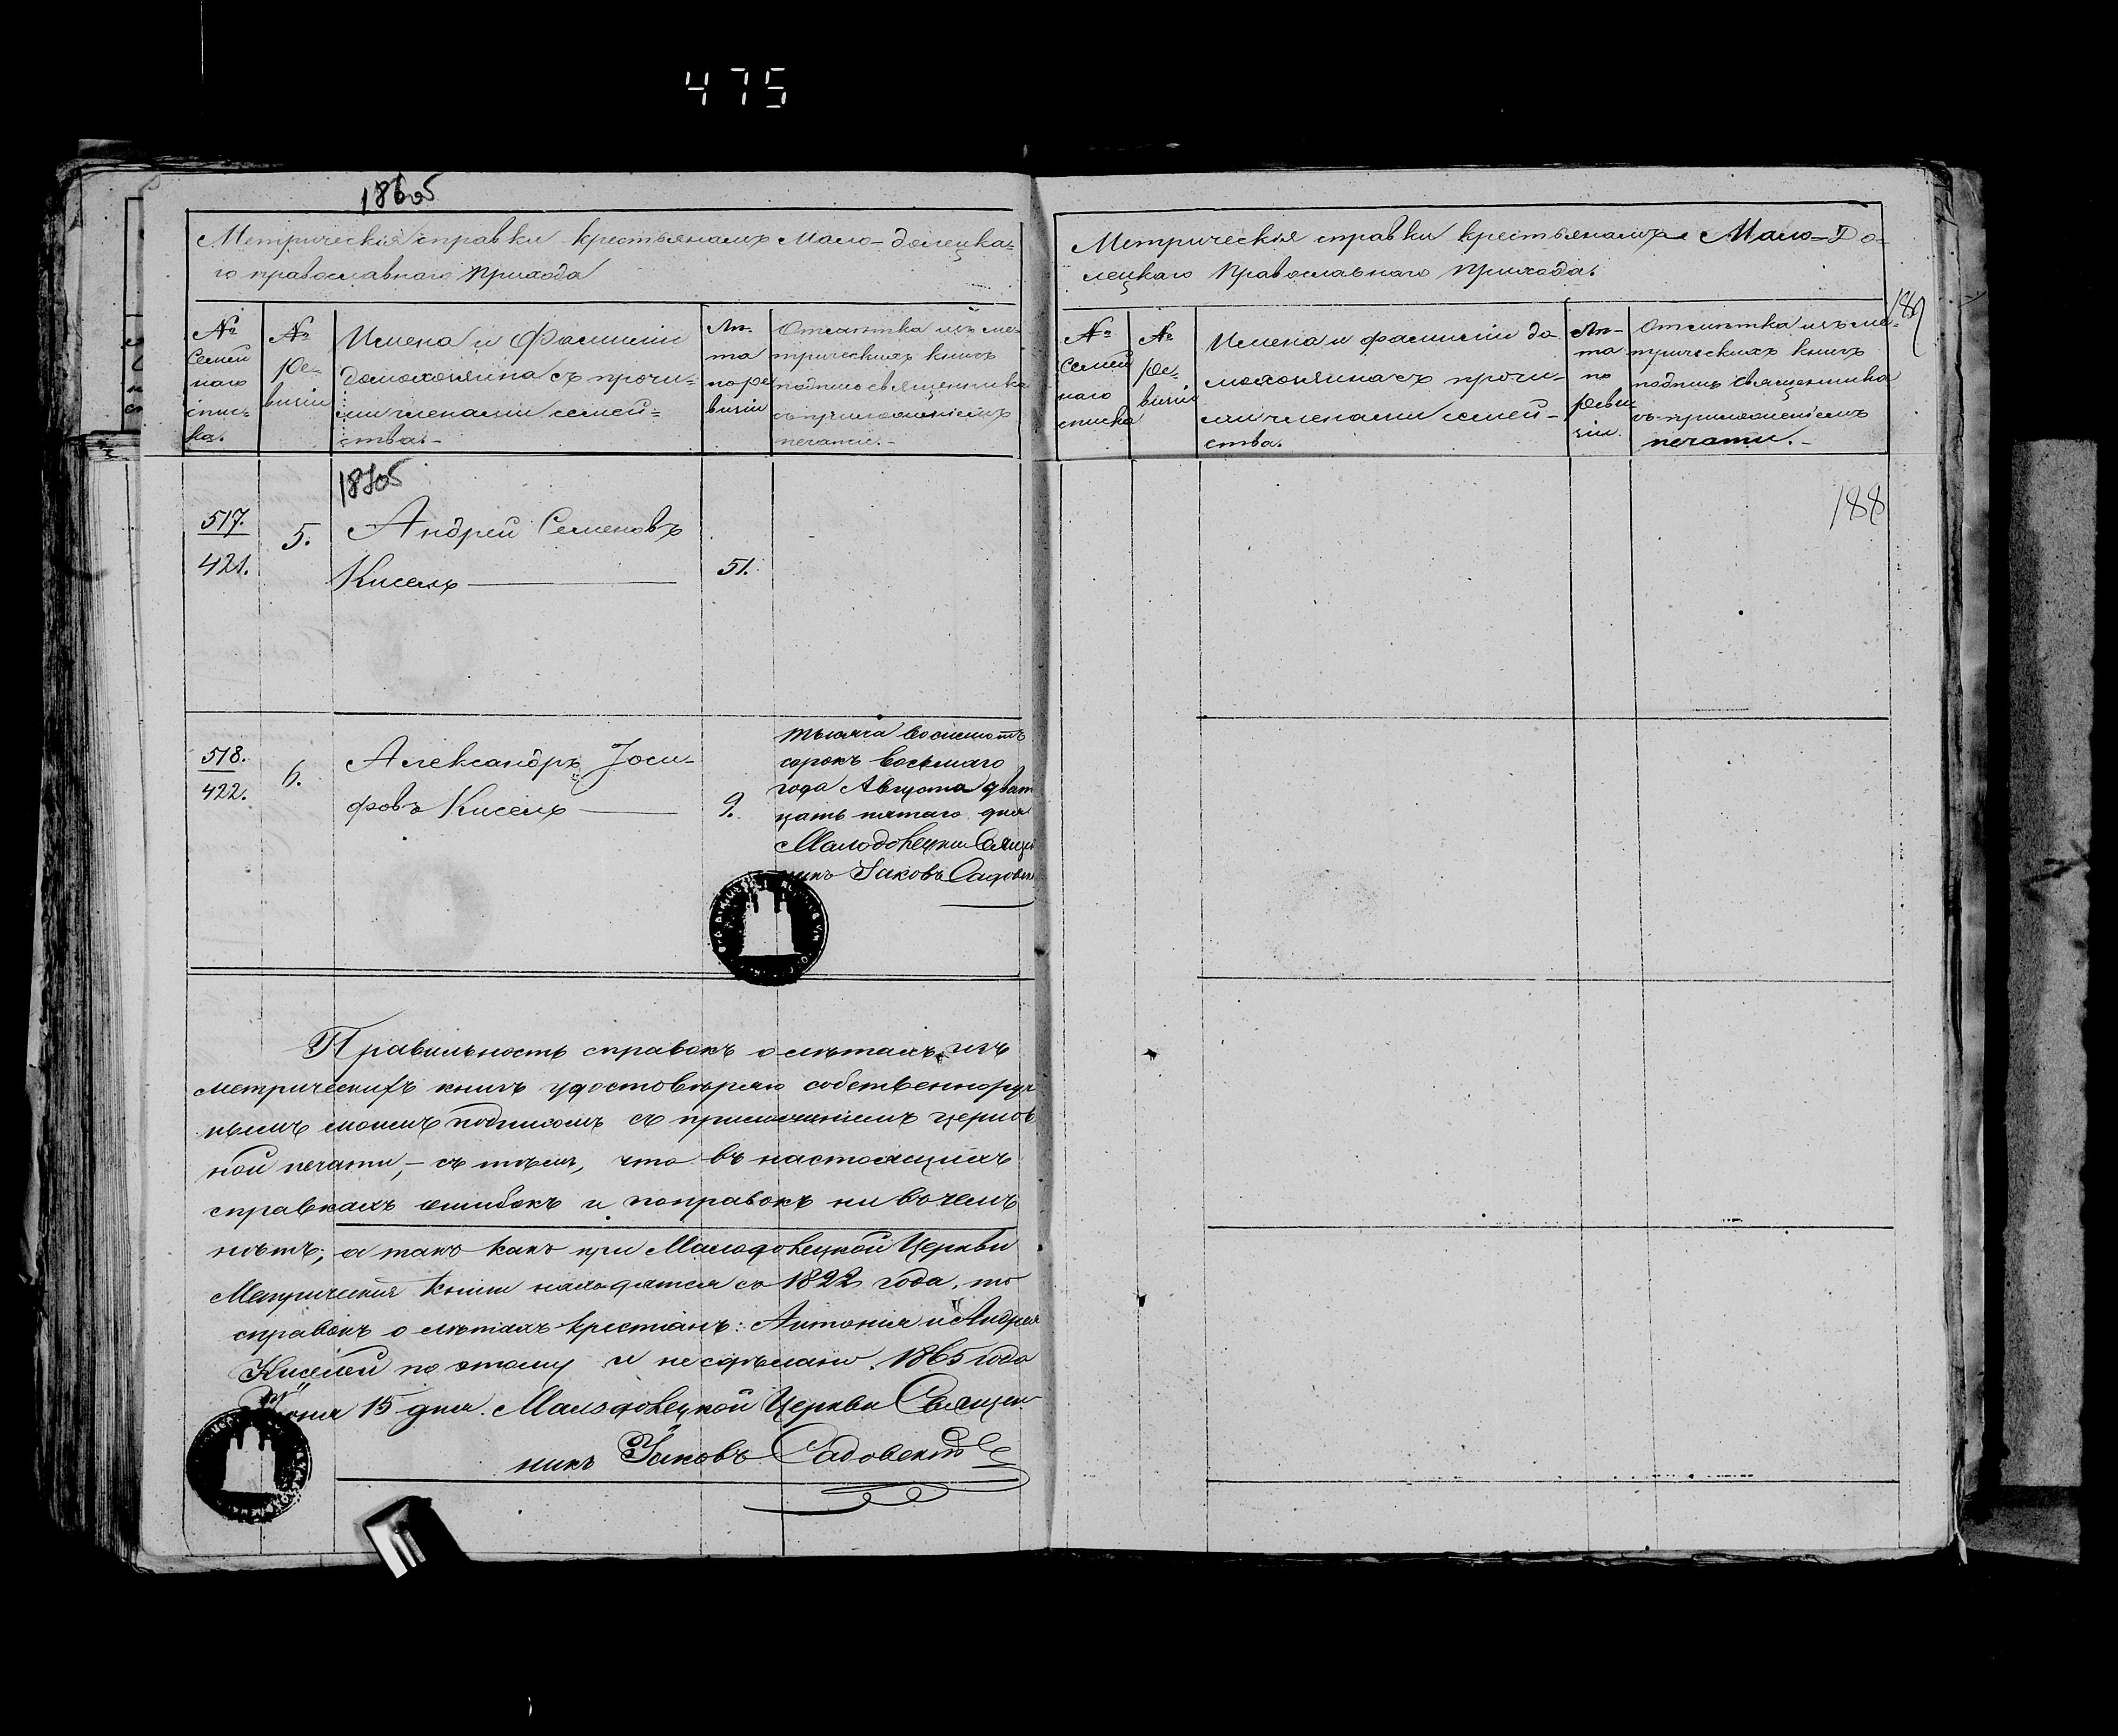 475
1865
Метрическія справки крестьянамъ Мало-долецка-
го православнаго прихода
№
Семей
наго
спис-
ка.
№
Ре-
визіи
Имена и Фамиліи
домохозяина съ прочи-
ми членами семей-
ства.-
Лѣ-
та
по ре
визіи
Отмѣтка изъ ме-
трическихъ книгъ
подпись священника
съ приложеніемъ
печати.-
517.
421.
5.
Андрей Семеновъ
Кисель
51.
518.
422.
6.
Александръ Іоси-
фовъ Кисель
9.
тысяча восемьсотъ
сорокъ восьмаго
года Августа двад
цать пятаго дня
Малодолецкій Свящ
никъ Іаковъ Садовск
Правильность справокъ о лѣтахъ изъ
метрическихъ книгъ удостовѣряю собственноруч
нымъ моимъ подписомъ съ приложеніемъ церков
ной печати,- съ тѣмъ, что въ настоящихъ
справкахъ ошибокъ и поправокъ ни въ чемъ
нѣтъ; а такъ какъ при Малодолецкой Церкви
Метрическія книги находятся съ 1822 года, то
справокъ о лѣтахъ крестіанъ: Антонія и Андрея
Киселей по этому и не сдѣлано. 1865 года
Іюня 15 дня. Малодолецкой Церкви Священ
никъ Іаковъ Садовскій
Метрическія справки крестьянамъ Мало-До-
лецкаго Православнаго прихода.
№
Семей
наго
списка
№
Ре-
визіи
Имена и фамиліи до
мохозяина съ прочи-
ми членами семей-
ства.
Лѣ-
та
по
реви
зіи.
Отмѣтка изъ ме-
трическихъ книгъ
подпись священника
съ приложеніемъ
печати.-
188